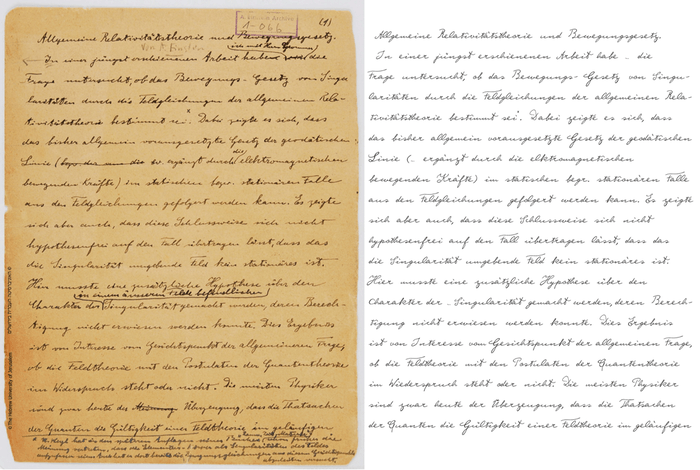 (1)
A. Einstein Archive
1-066
Allgemeine Relativitätstheorie und Bewegungsgesetz.
Von A. Einstein
In einer jüngst erschienenen Arbeit habe die
Frage untersucht, ob das Bewegungs-Gesetz von Singu-
laritäten durch die Feldgleichungen der allgemeinen Rela-
tivitätstheorie bestimmt sei. Dabei zeigte es sich, dass
das bisher allgemein vorausgesetzte Gesetz der geodätischen
Linie (bezw. ergänzt durch die elektromagnetischen
bewegenden Kräfte) im statischen bezw. stationären Falle
aus den Feldgleichungen gefolgert werden kann. Es zeigte
sich aber auch, dass diese Schlussweise sich nicht
hypothesenfrei auf den Fall übertragen lässt, dass das
die Singularität umgebende Feld kein stationäres ist.
Hier musste eine zusätzliche Hypothese über den
in einem äusseren Felde befindlicher
Charakter der Singularität gemacht werden, deren Berech-
tigung nicht erwiesen werden konnte. Dies Ergebnis
ist von Interesse vom Gesichtspunkt der allgemeineren Frage,
ob die Feldtheorie mit den Postulaten der Quantentheorie
im Widerspruch steht oder nicht. Die meisten Physiker
sind zwar heute der Überzeugung, dass die Thatsachen
der Quanten die Gültigkeit einer Feldtheorie im geläufigen
©The Hebrew University of Jerusalem
Allgemeine Relativitätstheorie und Bewegungsgesetz.
In einer jüngst erschienenen Arbeit habe - die
Frage untersucht, ob das Bewegungs- Gesetz von Singu-
laritäten durch die Feldgleichungen der allgemeinen Rela-
tivitätstheorie bestimmt sei. Dabei zeigte es sich, dass
das bisher allgemein vorausgesetzte Gesetz der geodätischen
Linie (. ergänzt durch die elktromagnetischen
bewegenden Kräfte) im statischen begr. stationären Falle
aus den Feldgleichungen gefolgert werden kann. Es zeigte
sich aber auch, dass diese Schlussweise sich nicht
hypothesenfrei auf den Fall übertragen lässt, dass das
die Singularität umgebende Feld kein stationäres ist.
Hier musste eine zusätzliche Hypothese über den
Charakter der - Singularität gemacht werden, deren Berech-
tigung nicht erwiesen werden konnte. Dies Ergebnis
ist von Interesse vom Gesichtspunkt der allgemeineren Frage,
ob die Feldtheorie mit den Postulaten der Quantentheorie
im Wiederspruch steht oder nicht. Die meisten Physiker
sind zwar heute der Überzeugung, dass die Thatsachen
der Quanten die Gültigkeit einer Feldtheorie im geläufigen